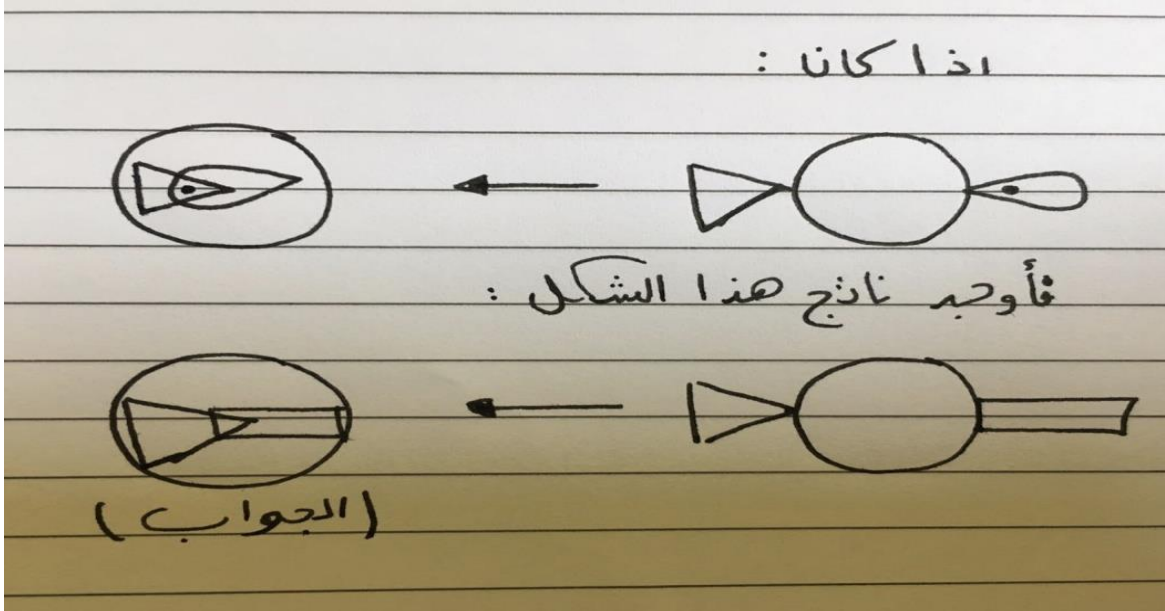 اذا كان :
فأوجد ناتج هذا الشكل :
(الجواب)